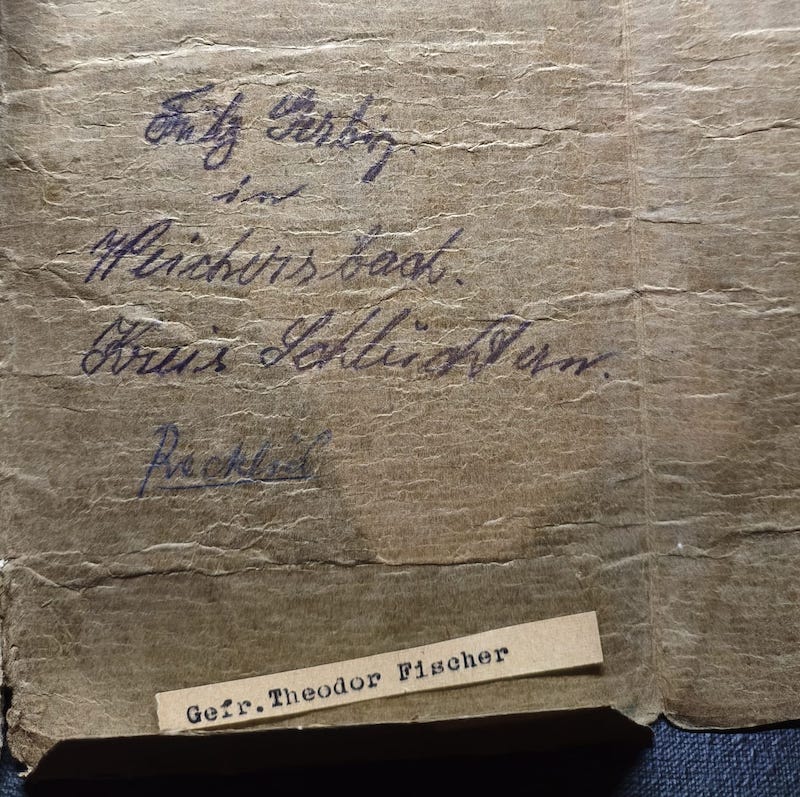 Fritz
in
Weichersbach.
Kreis Schlüchtern.
Gefr. Theodor Fischer